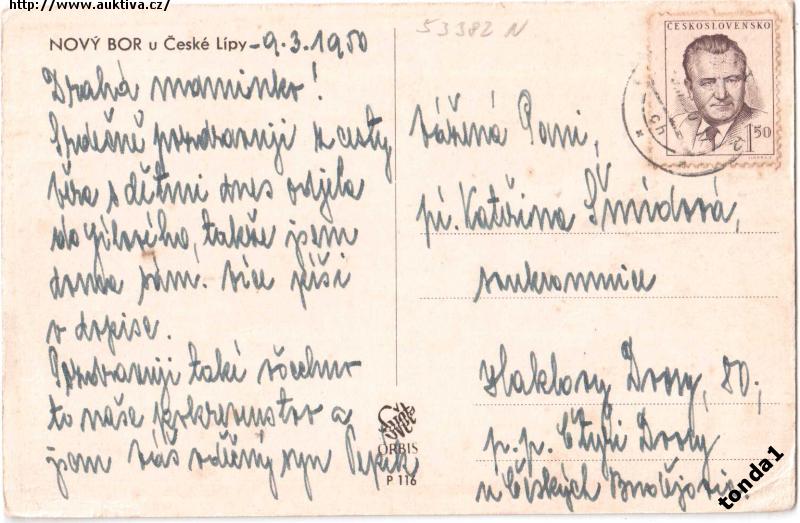 http://www.auktiva.cz/
NOVÝ BOR u České Lípy - 9.3.1950
Drahá maminko!
Srdečně pozdravuji z cesty
Věra s dětmi dnes odjela
do Jílového, takže jsem
doma sám. Více píši
v dopise.
Pozdravuji také všechno
to naše
a
jsem Váš vděčný syn Pepík
ORBIS
P 116
53382 N
ČESKOSLOVENSKO
1 50
Vážená Paní,
pí. Kateřina Šmídová,
soukromnice
Haklovy Dvory, 80,
p.p. Čtyři Dvory
u Českých Budějovic.
tonda1